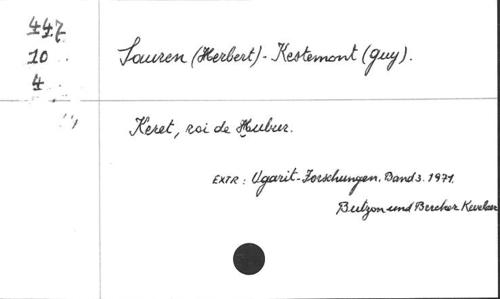 447
10
4
Sauren (Herbert)- Kestemont (Guy).
Keret, roi de Ḫubur.
EXTR: Ugarit-Forschungen. Band 3. 1971.
Butzon und Bercker Kevelaer